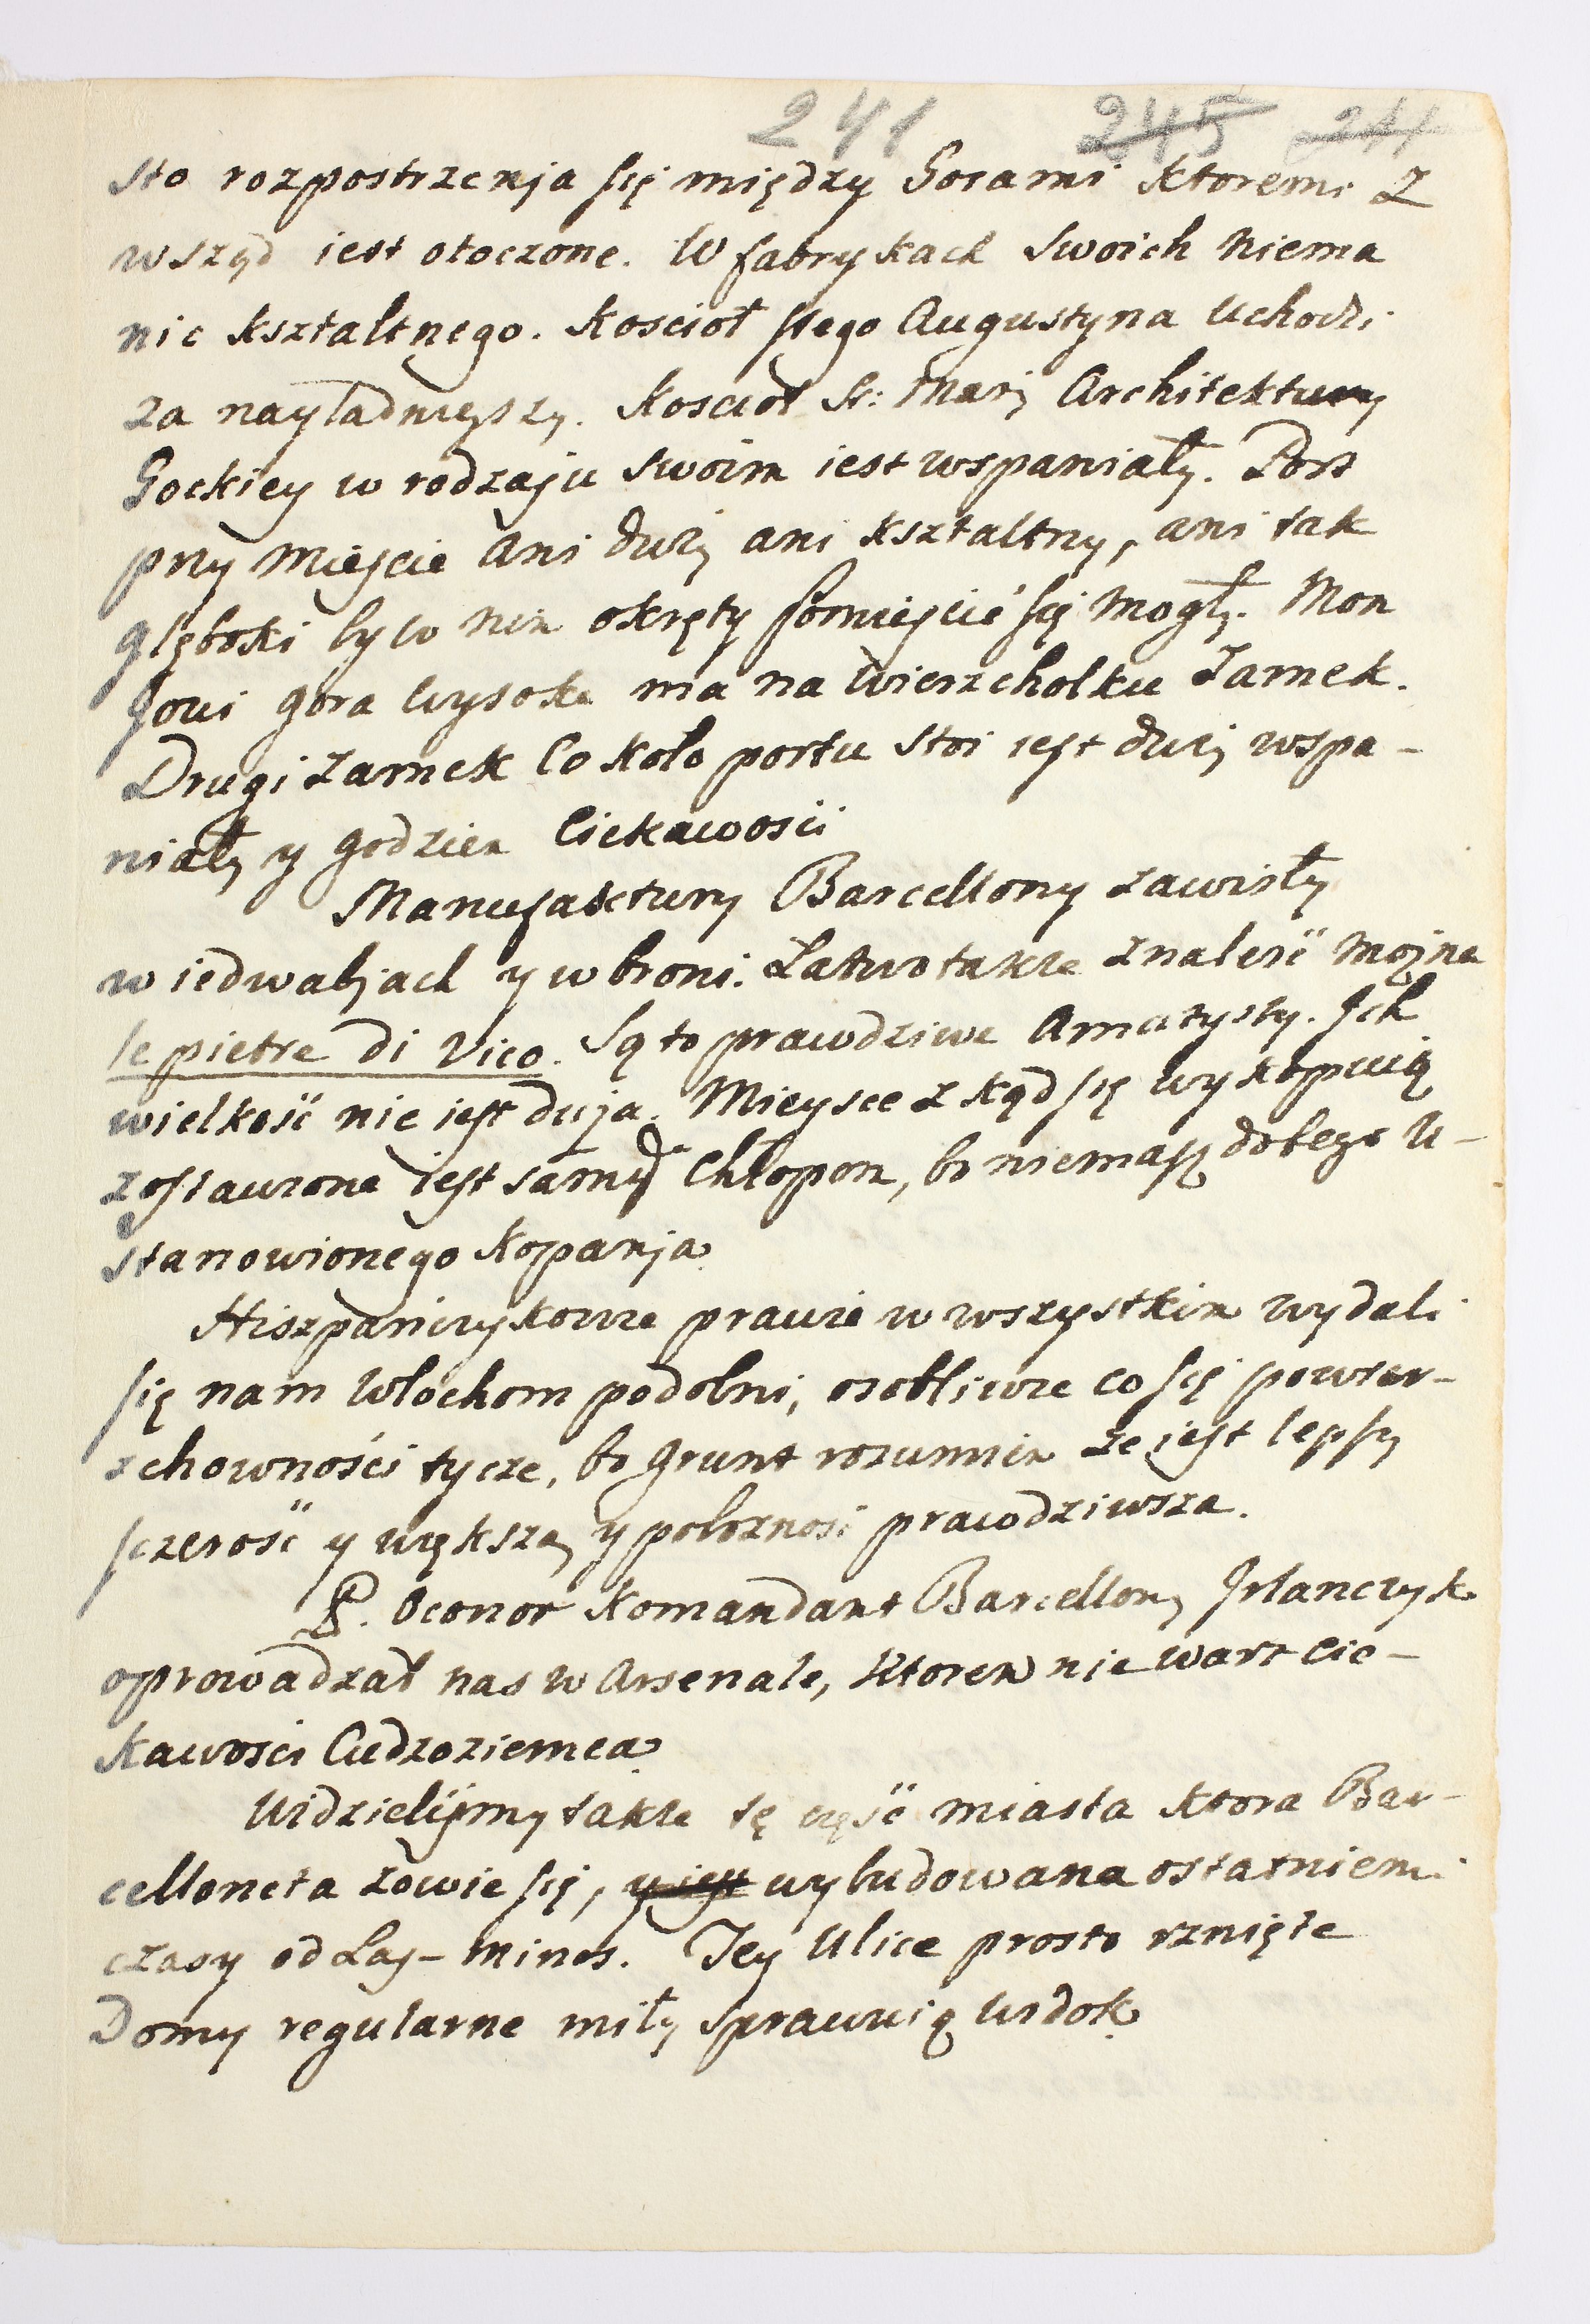 241 245 241
sto rozpostrzenja się między Gorami ktoremi z
wsząd iest otoczone. W fabrykach swoich niema
nic kształtnego. Koscioł stego Augustyna uchodzi
za nayładnieyszy. Koscioł St: Marj Architektury
Gockiey w rodzaju swoim iest wspaniały. Port
przy Miejscie ani duży ani kształtny, ani tak
głęboki by w nim okręty pomieścić się mogły. Mon
Joui gora wysoka ma na wierzchołku Zamek.
Drugi zamek co koło portu stoi iest duży wspa-
niały y godzien Ciekawosci
Manufaktury Barcellony zawisły
w iedwabjach y w broni. Łatwo takze znalesć mozna
le pietre di Vico. Są to prawdziwe Amatysty. Ich
wielkość nie iest duja. Mieysce z kąd się wykopuią
zostawione iest samym Chłopom, bo niemasz do tego u-
stanowionego kopanja.
Hiszpanczykowie prawie w wszystkim wydali
się nam Włochom podobni, osobliwie co się powier-
zchowności tycze, bo grunt rozumiem ze iest lepszy
sczerość y większa y poboznosć prawdziwsza.
P. Oconor Komandant Barcellony Irlanczyk
oprowadzał nas w Arsenale, ktoren nie wart cie-
kawosci Cudzoziemca.
Widzielismy takze tę część miasta ktora Bar-
celloneta zowie się, y iest wybudowana ostatniemi
czasy od Las-Minas. Jey Ulice prosto rznięte
Domy regularne miły sprawuią widok.